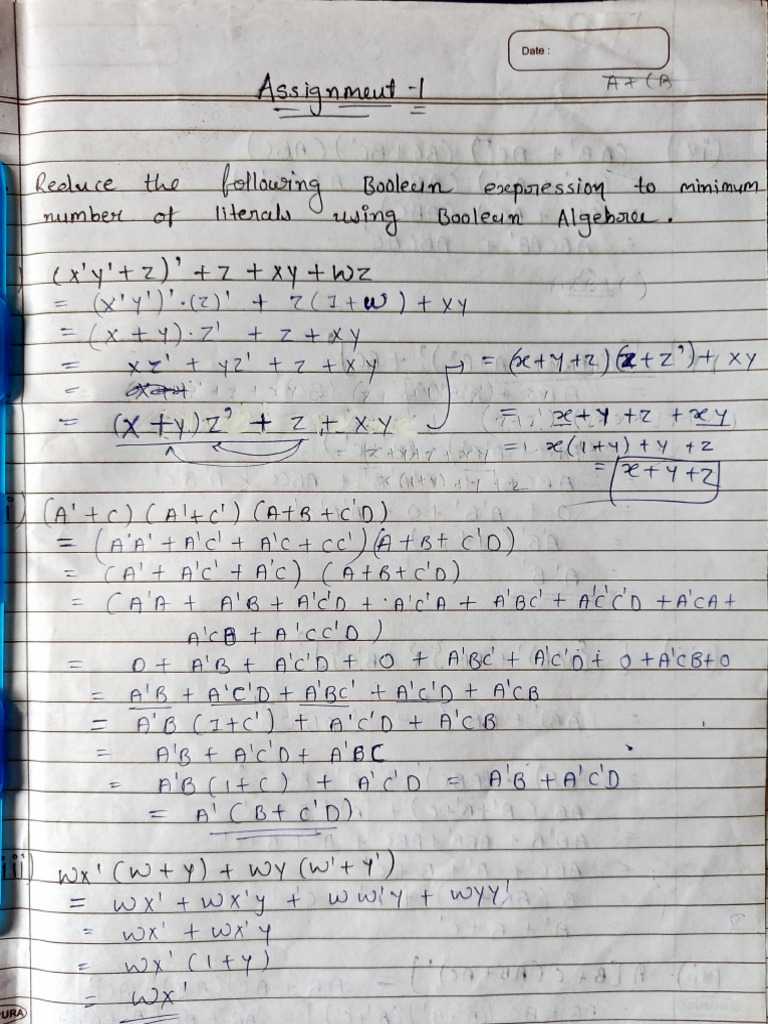 Date :
A+CB
Assignment -1
Reduce the following Boolean expression to minimum
number of literals using Boolean Algebra.
) (x'y'+z)' + z + xy + wz
= (x'y')'·(z)' + z(1+w) + xy
= (x + y)·z' + z + xy
= xz' + yz' + z + xy
=
= (x + y)z' + z + xy
= (x+y+z)(z+z')+ xy
= x+y+z + xy
= x(1+y)+y+z
= x+y+z
i) (A'+C) (A'+C') (A+B+C'D)
= (A'A' + A'C' + A'C + CC') (A+B+C'D)
= (A' + A'C' + A'C) (A+B+C'D)
= (A'A + A'B + A'C'D + A'C'A + A'BC' + A'C'C'D + A'CA +
A'CB + A'CC'D)
= 0 + A'B + A'C'D + 0 + A'BC' + A'C'D + 0 + A'CB+0
= A'B + A'C'D + A'BC' + A'C'D + A'CB
= A'B (1+C') + A'C'D + A'CB
= A'B + A'C'D + A'BC
= A'B (1+C) + A'C'D = A'B + A'C'D
= A' (B+ C'D).
iii) wx' (w+y) + wy (w'+y')
= wx' + wx'y + ww'y + wyy'
= wx' + wx'y
= wx' (1+y)
= wx'
PURA